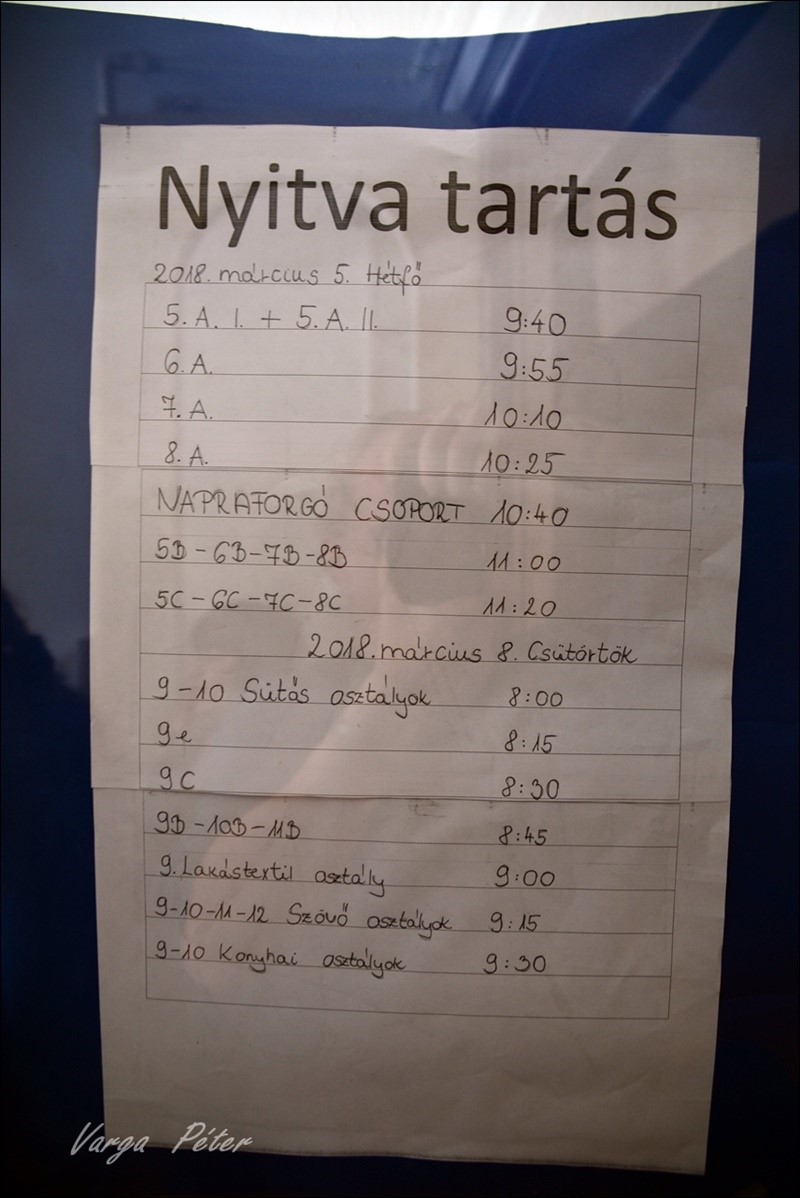 Nyitva tartás
2018. március 5. Hétfő
5. A. I. + 5. A. II. 9:40
6. A. 9:55
7. A. 10:10
8. A. 10:25
NAPRAFORGÓ CSOPORT 10:40
5B - 6B - 7B - 8B 11:00
5C - 6C - 7C - 8C 11:20
2018. március 8. Csütörtök
9 - 10 Sütős osztályok 8:00
9e 8:15
9C 8:30
9B - 10B - 11B 8:45
9. Lakástextil osztály 9:00
9-10-11-12 Szövő osztályok 9:15
9-10 Konyhai osztályok 9:30
Varga Péter